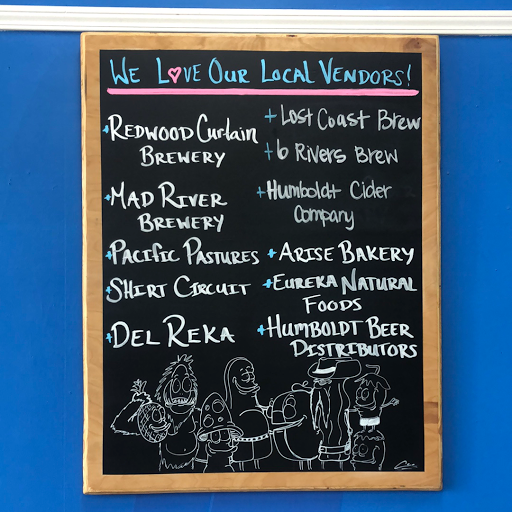 We L♥ve Our Local Vendors!
+Redwood Curtain
Brewery
+Mad River
Brewery
+Pacific Pastures
+Shirt Circuit
+Del Reka
+Lost Coast Brew
+6 Rivers Brew
+Humboldt Cider
Company
+Arise Bakery
+Eureka Natural
Foods
+Humboldt Beer
Distributors